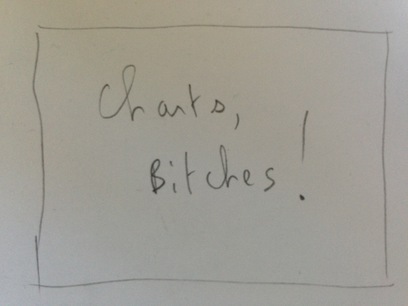 Charts,
Bitches!